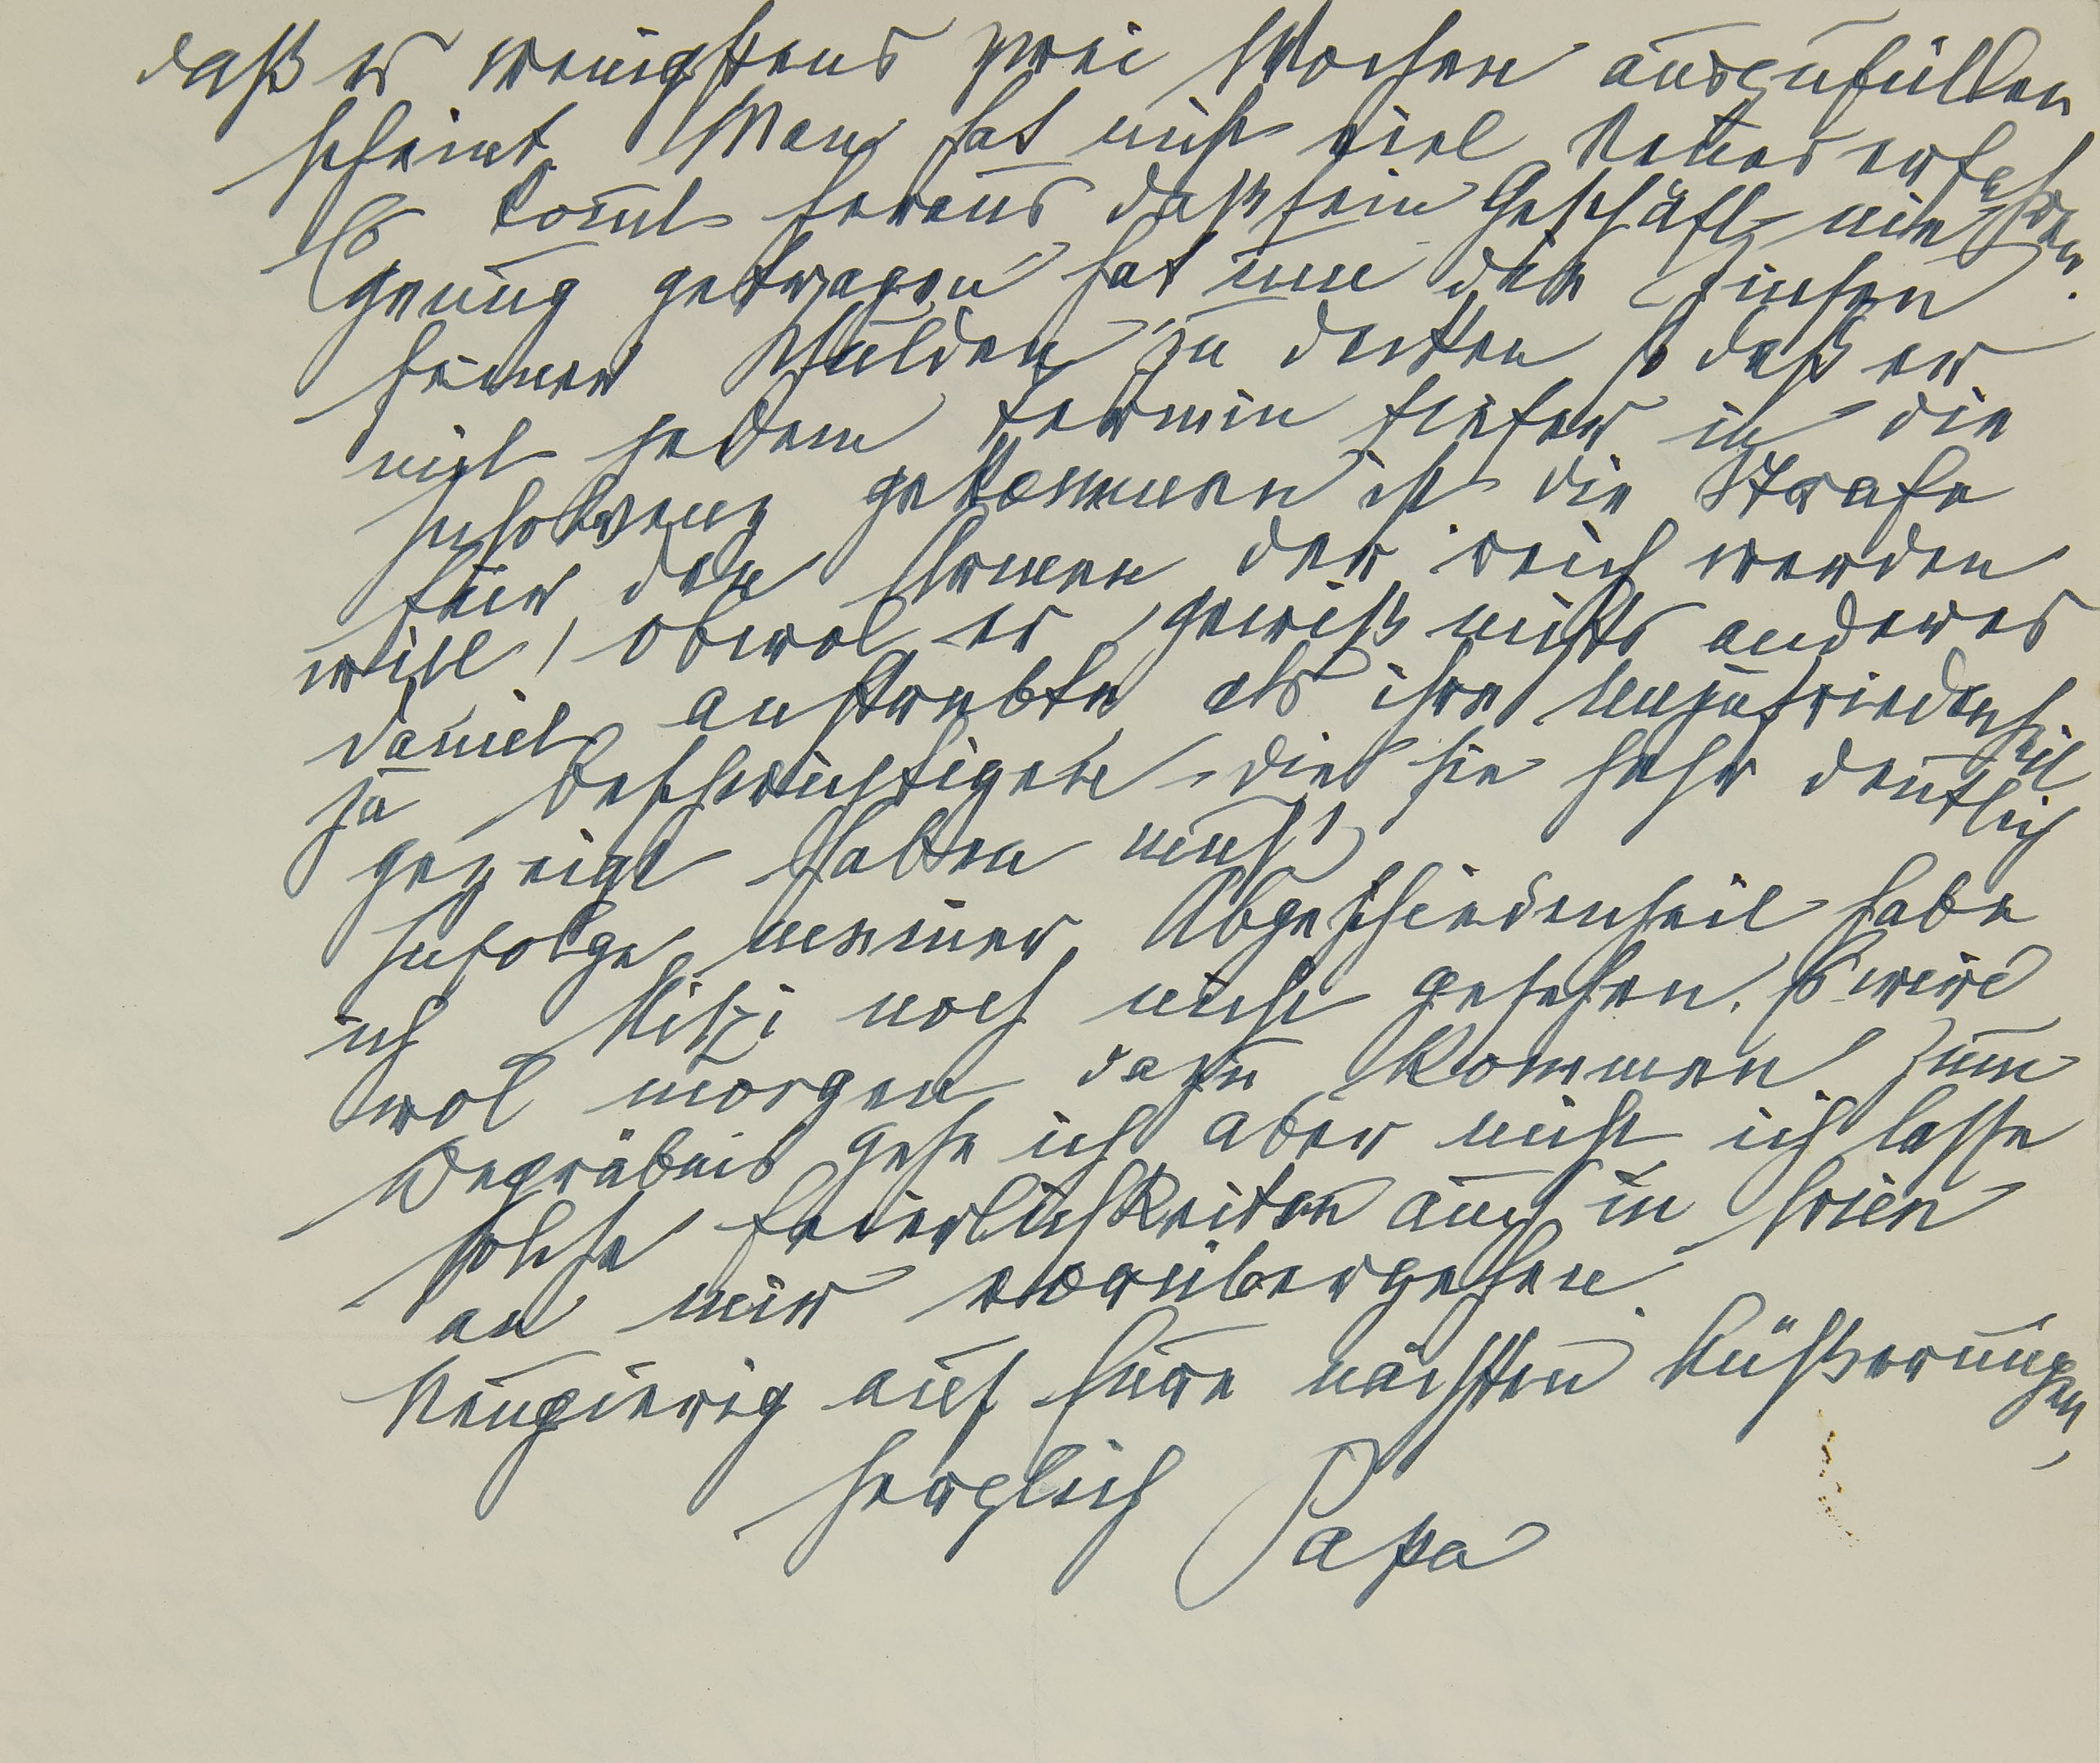 daß es wenigstens zwei Wochen auszufüllen
scheint. Man hat nicht viel Neues erfahren.
Es komt heraus daß sein Geschäft nie
genug getragen hat um die Zinsen
seiner Schulden zu decken, so daß er
mit jedem Termin tiefer in die
Insolvenz gekommen ist die Strafe
für den Armen der reich werden
will, obwol er gewiß nichts anderes
damit anstrebte als ihre Unzufriedenheit
zu beschwichtigen, die sie sehr deutlich
gezeigt haben muß.
Infolge meiner Abgeschiedenheit habe
ich Mitzi noch nicht gesehen. Es wird
wol morgen dazu kommen. Zum
Begräbnis gehe ich aber nicht ich lasse
solche Feierlichkeiten auch in Wien
an mir vorübergehen.
Neugierig auf Eure nächsten Äußerungen,
herzlich Papa